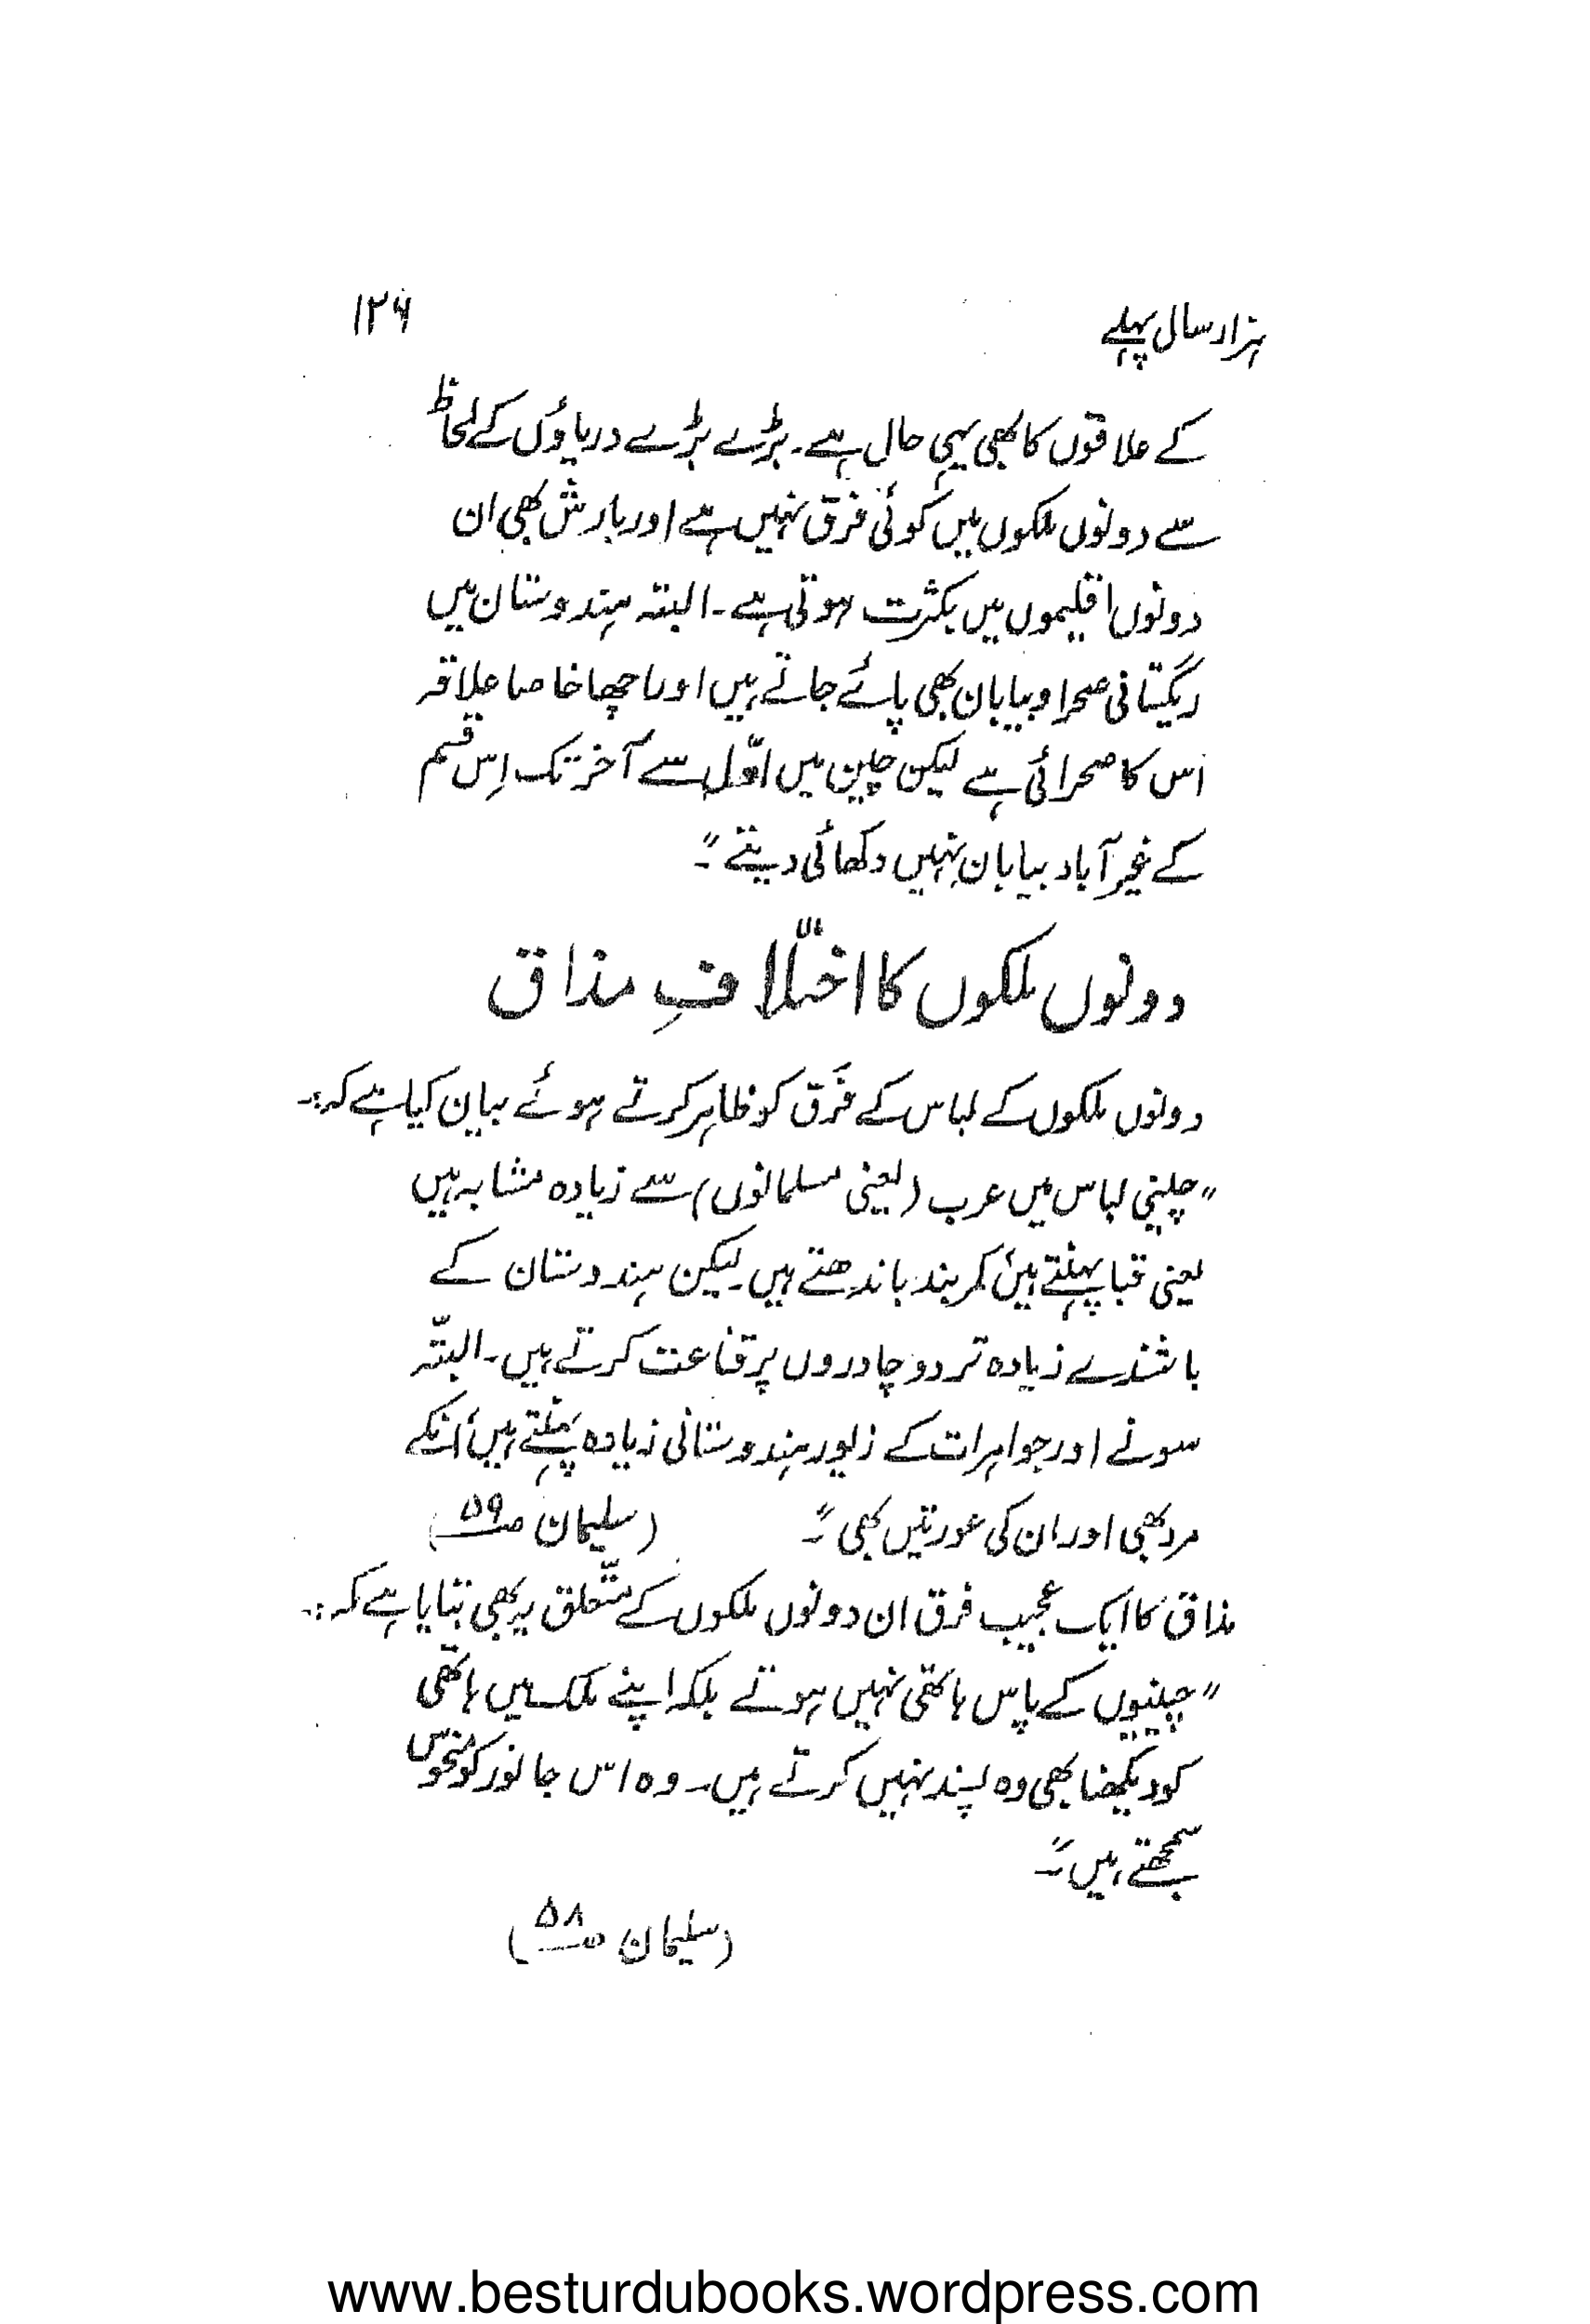 ہزار سال پہلے
۱۲۶
کے علاقوں کا بھی یہی حال ہے۔ بڑے بڑے دریاؤں کے لحاظ
سے دونوں ملکوں میں کوئی فرق نہیں ہے اور بارش بھی ان
دونوں اقلیموں میں بکثرت ہوتی ہے۔ البتہ ہندوستان میں
ریگستانی صحرا و بیابان بھی پائے جاتے ہیں اور اچھا خاصا علاقہ
اس کا صحرائی ہے لیکن چین میں اوّل سے آخر تک اِس قسم
کے غیر آباد بیابان نہیں دکھائی دیتے"۔
دونوں ملکوں کا اختلافِ مذاق
دونوں ملکوں کے لباس کے فرق کو ظاہر کرتے ہوئے بیان کیا ہے کہ:۔
"چینی لباس میں عرب (یعنی مسلمانوں) سے زیادہ مشابہ ہیں
یعنی قبا پہنتے ہیں، کمربند باندھتے ہیں۔ لیکن ہندوستان کے
باشندے زیادہ تر دو چادروں پر قناعت کرتے ہیں۔ البتّہ
سونے اور جواہرات کے زیور ہندوستانی زیادہ پہنتے ہیں، انکے
مرد بھی اور ان کی عورتیں بھی"۔ (سلیمان ص۵۹)
مذاق کا ایک عجیب فرق ان دونوں ملکوں کے متّعلق یہ بھی بتایا ہے کہ:۔
"چینیوں کے پاس ہاتھی نہیں ہوتے بلکہ اپنے ملک میں ہاتھی
کو دیکھنا بھی وہ پسند نہیں کرتے ہیں۔ وہ اس جانور کو منحوس
سمجھتے ہیں"۔
(سلیمان ص۵۸)
www.besturdubooks.wordpress.com